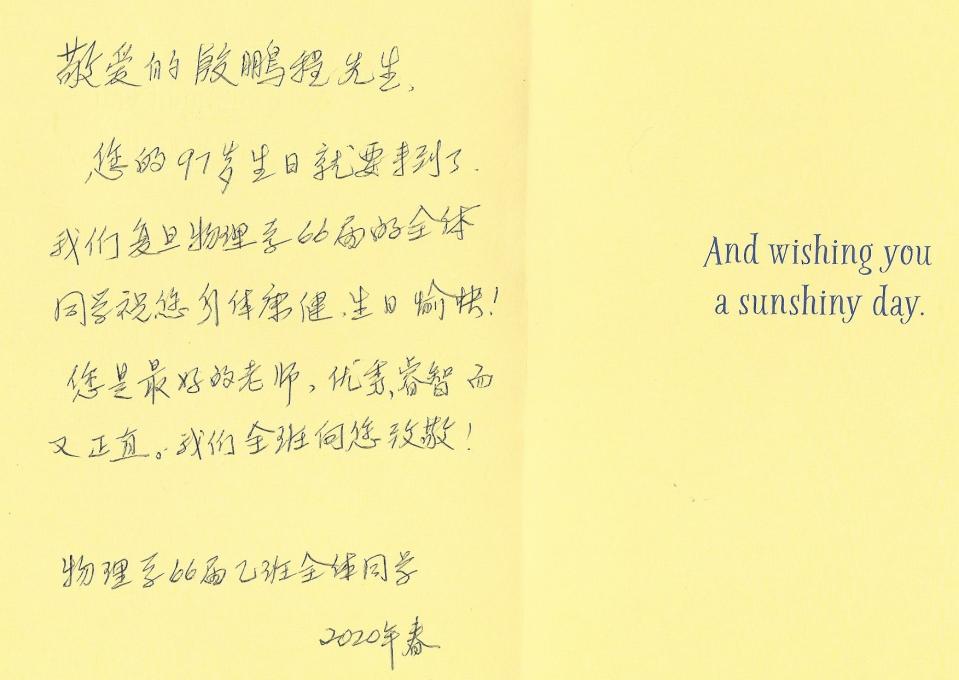 敬爱的殷鹏程先生,
您的97岁生日就要来到了.
我们复旦物理系66届的全体
同学祝您身体康健、生日愉快!
您是最好的老师,优秀、睿智而
又正直。我们全班向您致敬!
物理系66届乙班全体同学
2020年春
And wishing you
a sunshiny day.